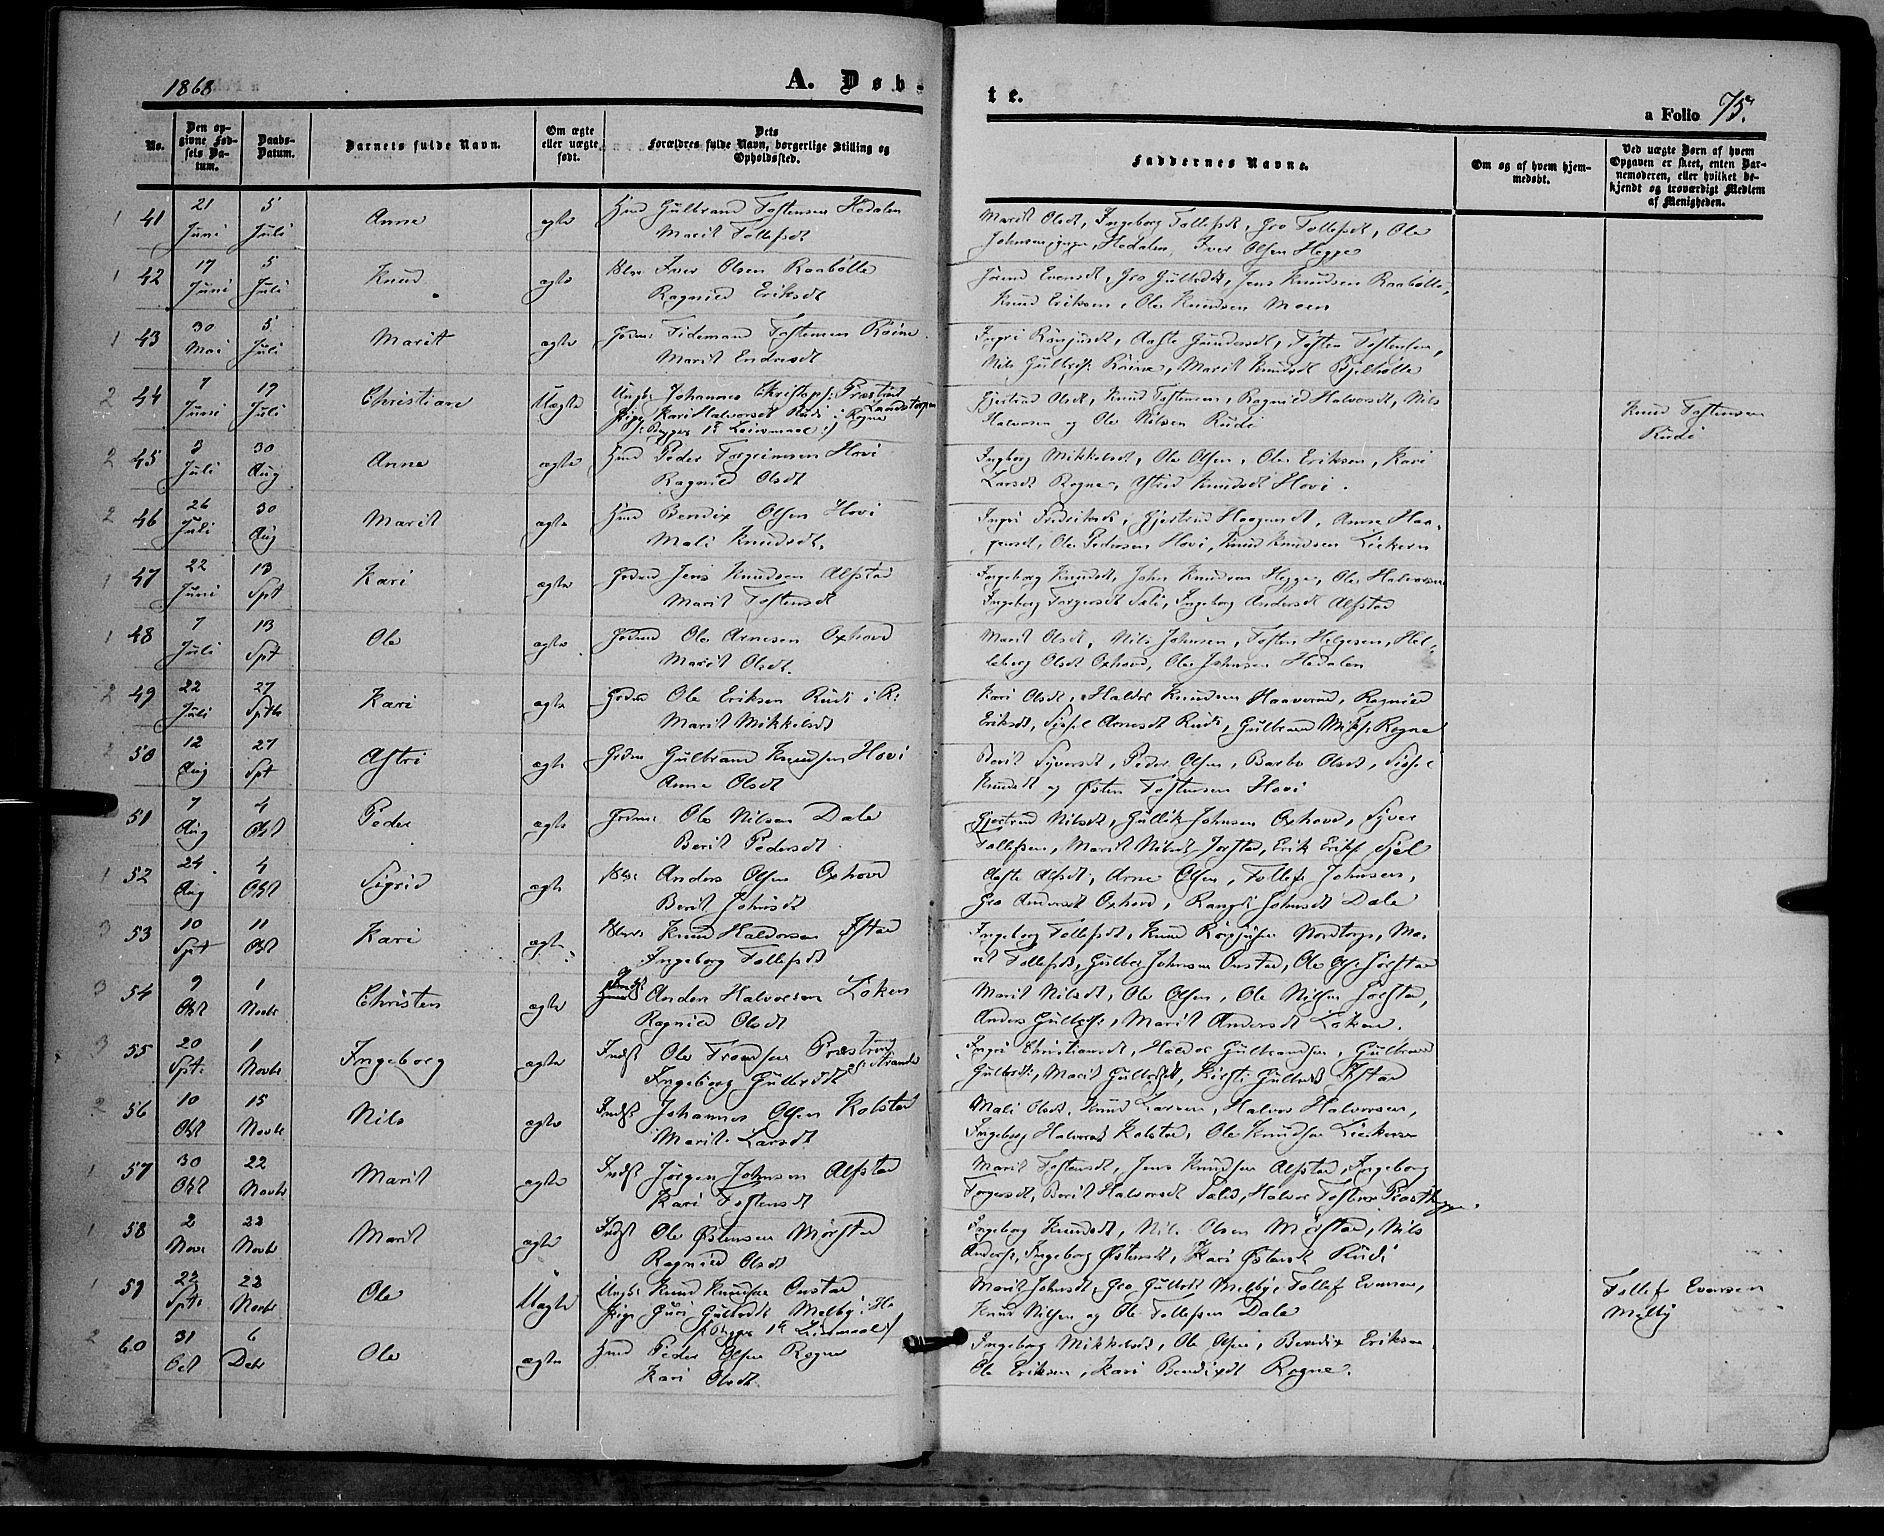 1868
A. Døb-
te.
a Folio 75.
No.
Den op-
givne Fød-
sels Da-
tum.
Daabs-
Datum.
Barnets fulde Navn.
Om ægte
eller uægte
født.
Dets
Forældres fulde Navn, borgerlige Stilling og
Opholdssted.
Faddernes Navne.
Om og af hvem hjem-
medøbt.
Ved uægte Børn af hvem
Opgaven er skeet, enten Bar-
nemoderen, eller hvilket be-
kjendt og troværdigt Medlem
af Menigheden.
1 41 21 Juni 5 Juli Anne ægte Hmd Gulbrand Tostensen Hedalen
Marit Tollefsdt
Marit Olsdt, Ingeborg Tollefsdt, Gro Tollefsdt, Ole
Johnsen, Hedalen, Iver Olsen Hegge
1 42 17 Juni 5 Juli Knud ægte Iver Olsen Raabølle
Ragnild Eriksdt
Jørend Evensdt, Gro Gulbrdt, Jens Knudsen Raabølle,
Knud Eriksen, Ole Knudsen Moen
1 43 30 Mai 5 Juli Marit ægte Gdmd Tideman Tostensen Røine
Marit Endresdt
Ingri Aaste Gundersdt, Tosten Tostensen,
Nils Gulbrs. Røine, Marit Knudsdt
2 44 7 Juni 19 Juli Christiane Uægte Ungk: Johannes Christophs: Præstrud
Pige Kari Halvorsdt Rudi i Rogne
/: Begges 1ste Leiermaal :/
Gjertrud Olsdt, Knud Tostensen, Ragnild Halvorsdt, Nils
Halvorsen og Ole Nilsen Rudi
Knud Tostensen
Rudi
2 45 3 Juli 30 Aug Anne ægte Hmd Peder Torgrimsen Hovi
Ragnild Olsdt
Ingborg Mikkelsdt, Ole Olsen, Ole Eriksen, Kari
Larsdt Rogne, Astrid Knudsdt Hovi.
2 46 26 Juli 30 Aug Marit ægte Hmd Bendix Olsen Hovi
Mali Knudsdt.
Ingri Fredriksdt, Gjertrud Haagensdt, Anne Haa-
gensdt, Ole Pedersen Hovi, Knud Knudsen Liekern
1 47 22 Juni 13 Spt Kari ægte Gdmd Jens Knudsen Alfstad
Marit Tostensdt
Ingeborg Knudsdt, John Knudsen Hegge, Ole Halvorsen
Ingeborg Torgersdt Sali, Ingeborg Andersdt Alfstad
1 48 7 Juli 13 Spt Ole ægte Gdmd Ole Arnesen Oxhovd
Marit Olsdt.
Marit Olsdt, Nils Johnsen, Tosten Helgesen, Hel-
leborg Olsdt Oxhovd, Ole Johnsen Hedalen
2 49 22 Juli 27 Sptb Kari ægte Gdmd Ole Eriksen Rudi i R:
Marit Mikkelsdt
Kari Olsdt, Haldor Knudsen Haaverud, Ragnild
Eriksdt, Sissel Arnesdt Rudi, Gulbrand Mikks. Rogne
2 50 12 Aug 27 Spt Astri ægte Gdmd Gulbrand Knudsen Hovi
Anne Olsdt
Berit Syversdt, Peder Olsen, Barbro Olsdt, Sissel
Knudsdt og Østen Tostensen Hovi
51 7 Aug 4 Okt Peder ægte Gdmd: Ole Nilsen Dale
Berit Pedersdt.
Gjertrud Nilsdt, Gullik Johnsen Oxhovd, Syver
Tollefsen, Marit Nilsdt Jorstad, Erik Eriks. Fjel
1 52 24 Aug 4 Okt Sigrid ægte Anders Olsen Oxhovd
Berit Johnsdt
Aaste Alfsdt, Arne Olsen, Tollef Johnsen,
Gro Andersdt Oxhovd, Rangdi Johnsdt Dale
3 53 10 Spt 11 Okt Kari ægte Knud Haldorsen Istad
Ingeborg Tollefsdt
Ingeborg Tollefsdt, Knud Nordtorp, Ma-
rit Tollefsdt, Gulbr Johnsen Onstad, Ole Ols. Jorstad
3 54 9 Okt 1 Novbr Christen ægte Anders Halvorsen Løken
Ragnild Olsdt
Marit Nilsdt, Ole Olsen, Ole Nilsen Jorstad,
Anders Gulbrs:, Marit Andersdt Løkene.
3 55 20 Spt. 1 Novbr Ingeborg ægte Indst Ole Frandsen Præstrud
Ingeborg Gulbrdt
Ingri Christiansdt, Haldor Gulbrandsen, Gulbrand
Gulbrds:, Marit Gulbrdt, Kirsti Gulbrds Istad
2 56 10 Okt 15 Novbr Nils ægte Indst Johannes Olsen Kolstad
Marit Larsdt
Mali Olsdt, Knud Larsen, Halvor Halvorsen,
Ingeborg Halvorsdt Kolstad, Ole Knudsen Liekern
1 57 30 Okt 22 Novbr Marit ægte Indst Jørgen Johnsen Alfstad
Kari Tostensdt
Marit Tostensdt, Jens Knudsen Alfstad, Ingeborg
Torgersdt, Berit Halvorsdt Salid, Halvor Tostensen
1 58 2 Nov 22 Novbr Marit ægte Indst Ole Østensen Mørstad
Ragnild Olsdt
Ingeborg Knudsdt, Nils Olsen Mørstad, Nils
Anders., Ingeborg Østensdt, Kari Østensdt Rudi
1 59 22 Spt. 22 Novbr Ole Uægte Ungk: Knud Knudsen Onstad
Pige Guri Gulbrdt Melby i He
/: Begges 1ste Leiermaal :/
Marit Johnsdt, Gro Gulbrdt Melby, Tollef Evensen,
Knud Nilsen og Ole Tollefsen Dale
Tollef Evensen
Melby
2 60 31 Oct 6 Debr Ole ægte Hmd Peder Olsen Rogne
Kari Olsdt.
Ingeborg Mikkelsdt, Ole Olsen, Bendix Eriksen
Ole Eriksen, Kari Bendixdt Rogne.